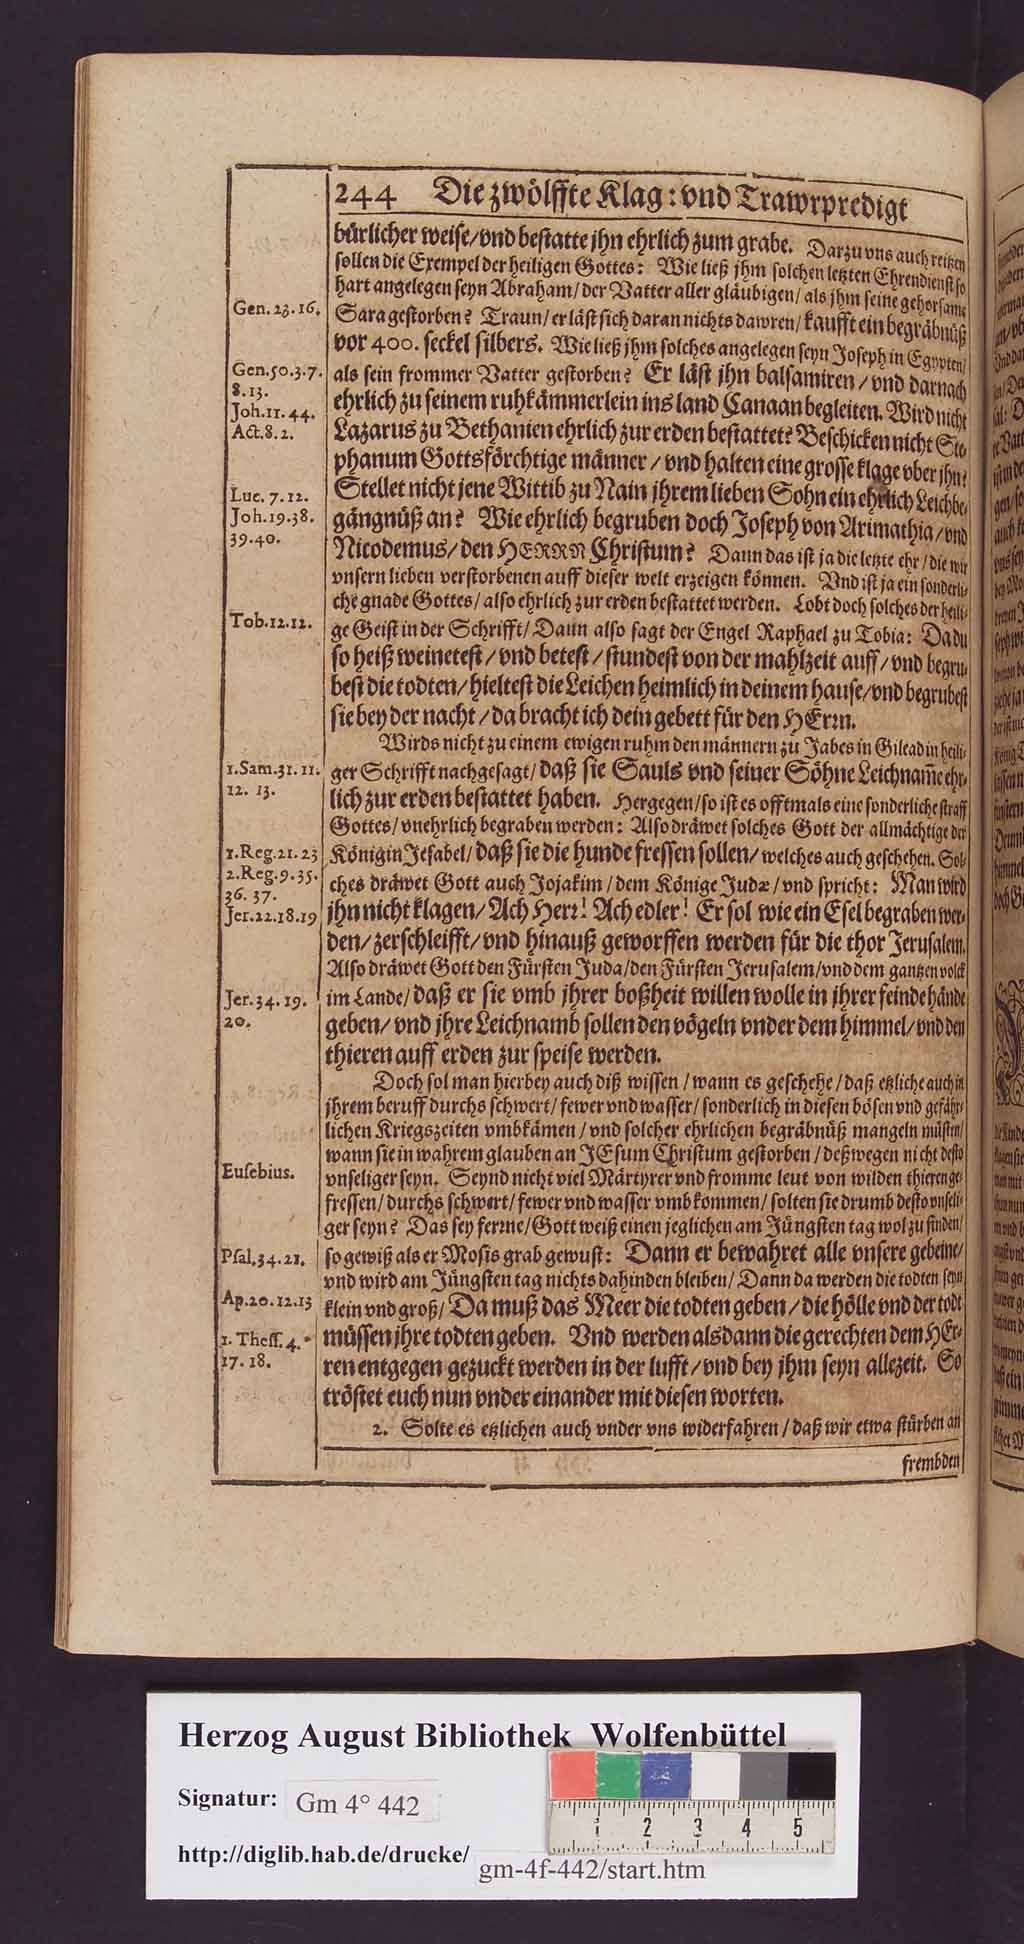 244 Die zwölffte Klag: vnd Trawrpredigt
bürlicher weise/vnd bestatte jhn ehrlich zum grabe. Darzu vns auch reitzen
sollen die Exempel der heiligen Gottes: Wie ließ jhm solchen letzten Ehrendienst so
hart angelegen seyn Abraham/ der Vatter aller gläubigen/ als jhm seine gehorsame
Gen. 23. 16. Sara gestorben? Traun/ er läst sich daran nichts dawren/ kaufft ein begräbnüß
vor 400. seckel silbers. Wie ließ jhm solches angelegen seyn Joseph in Egypten/
Gen. 50. 3. 7. als sein frommer Vatter gestorben? Er läst jhn balsamiren/ vnd darnach
8. 13. ehrlich zu seinem ruhkämmerlein ins land Canaan begleiten. Wird nicht
Joh. 11. 44.
Act. 8. 2. Lazarus zu Bethanien ehrlich zur erden bestattet? Beschicken nicht Ste-
phanum Gottsförchtige männer/ vnd halten eine grosse klage vber jhn?
Luc. 7. 12. Stellet nicht jene Wittib zu Nain jhrem lieben Sohn ein ehrlich Leichbe-
Joh. 19. 38. gängnüß an? Wie ehrlich begruben doch Joseph von Arimathia/ vnd
39. 40. Nicodemus/ den HERRN Christum? Dann das ist ja die letzte ehr/ die wir
vnsern lieben verstorbenen auff dieser welt erzeigen können. Vnd ist ja ein sonderli-
che gnade Gottes/ also ehrlich zur erden bestattet werden. Lobt doch solches der heili-
Tob. 12. 12. ge Geist in der Schrifft/ Dann also sagt der Engel Raphael zu Tobia: Da du
so heiß weinetest/ vnd betest/ stundest von der mahlzeit auff/ vnd begru-
best die todten/ hieltest die Leichen heimlich in deinem hause/ vnd begrubest
sie bey der nacht/ da bracht ich dein gebett für den HErrn.
Wirds nicht zu einem ewigen ruhm den männern zu Jabes in Gilead in heili-
1. Sam. 31. 11. ger Schrifft nachgesagt/ daß sie Sauls vnd seiner Söhne Leichnam̃e ehr-
12. 13. lich zur erden bestattet haben. Hergegen/ so ist es offtmals eine sonderliche straff
Gottes/ vnehrlich begraben werden: Also dräwet solches Gott der allmächtige der
1. Reg. 21. 23 Königin Jesabel/ daß sie die hunde fressen sollen/ welches auch geschehen. Sol-
2. Reg. 9. 35. ches dräwet Gott auch Jojakim/ dem Könige Judæ/ vnd spricht: Man wird
36. 37.
Jer. 22. 18. 19 jhn nicht klagen/ Ach Herr! Ach edler! Er sol wie ein Esel begraben wer-
den/ zerschleifft/ vnd hinauß geworffen werden für die thor Jerusalem.
Also dräwet Gott den Fürsten Juda/ den Fürsten Jerusalem/ vnd dem gantzen volck
Jer. 34. 19. im Lande/ daß er sie vmb jhrer boßheit willen wolle in jhrer feinde hände
20. geben/ vnd jhre Leichnamb sollen den vögeln vnder dem himmel/ vnd den
thieren auff erden zur speise werden.
Doch sol man hierbey auch diß wissen/ wann es geschehe/ daß etzliche auch in
jhrem beruff durchs schwert/ fewer vnd wasser/ sonderlich in diesen bösen vnd gefähr-
lichen Kriegszeiten vmbkämen/ vnd solcher ehrlichen begräbnüß mangeln müsten/
wann sie in wahrem glauben an JEsum Christum gestorben/ deßwegen nicht desto
Eusebius. vnseliger seyn. Seynd nicht viel Märtyrer vnd fromme leut von wilden thieren ge-
fressen/ durchs schwert/ fewer vnd wasser vmbkommen/ solten sie drumb desto vnseli-
ger seyn? Das sey ferrne/ Gott weiß einen jeglichen am Jüngsten tag wol zu finden/
Psal. 34. 21. so gewiß als er Mosis grab gewust: Dann er bewahret alle vnsere gebeine/
vnd wird am Jüngsten tag nichts dahinden bleiben/ Dann da werden die todten seyn
Ap. 20. 12. 13 klein vnd groß/ Da muß das Meer die todten geben/ die hölle vnd der todt
1. Thess. 4. müssen jhre todten geben. Vnd werden alsdann die gerechten dem HEr-
17. 18. ren entgegen gezuckt werden in der lufft/ vnd bey jhm seyn allezeit. So
tröstet euch nun vnder einander mit diesen worten.
2. Solte es etzlichen auch vnder vns widerfahren/ daß wir etwa stürben an
frembden
Herzog August Bibliothek Wolfenbüttel
Signatur: Gm 4° 442
http://diglib.hab.de/drucke/ gm-4f-442/start.htm
1 2 3 4 5